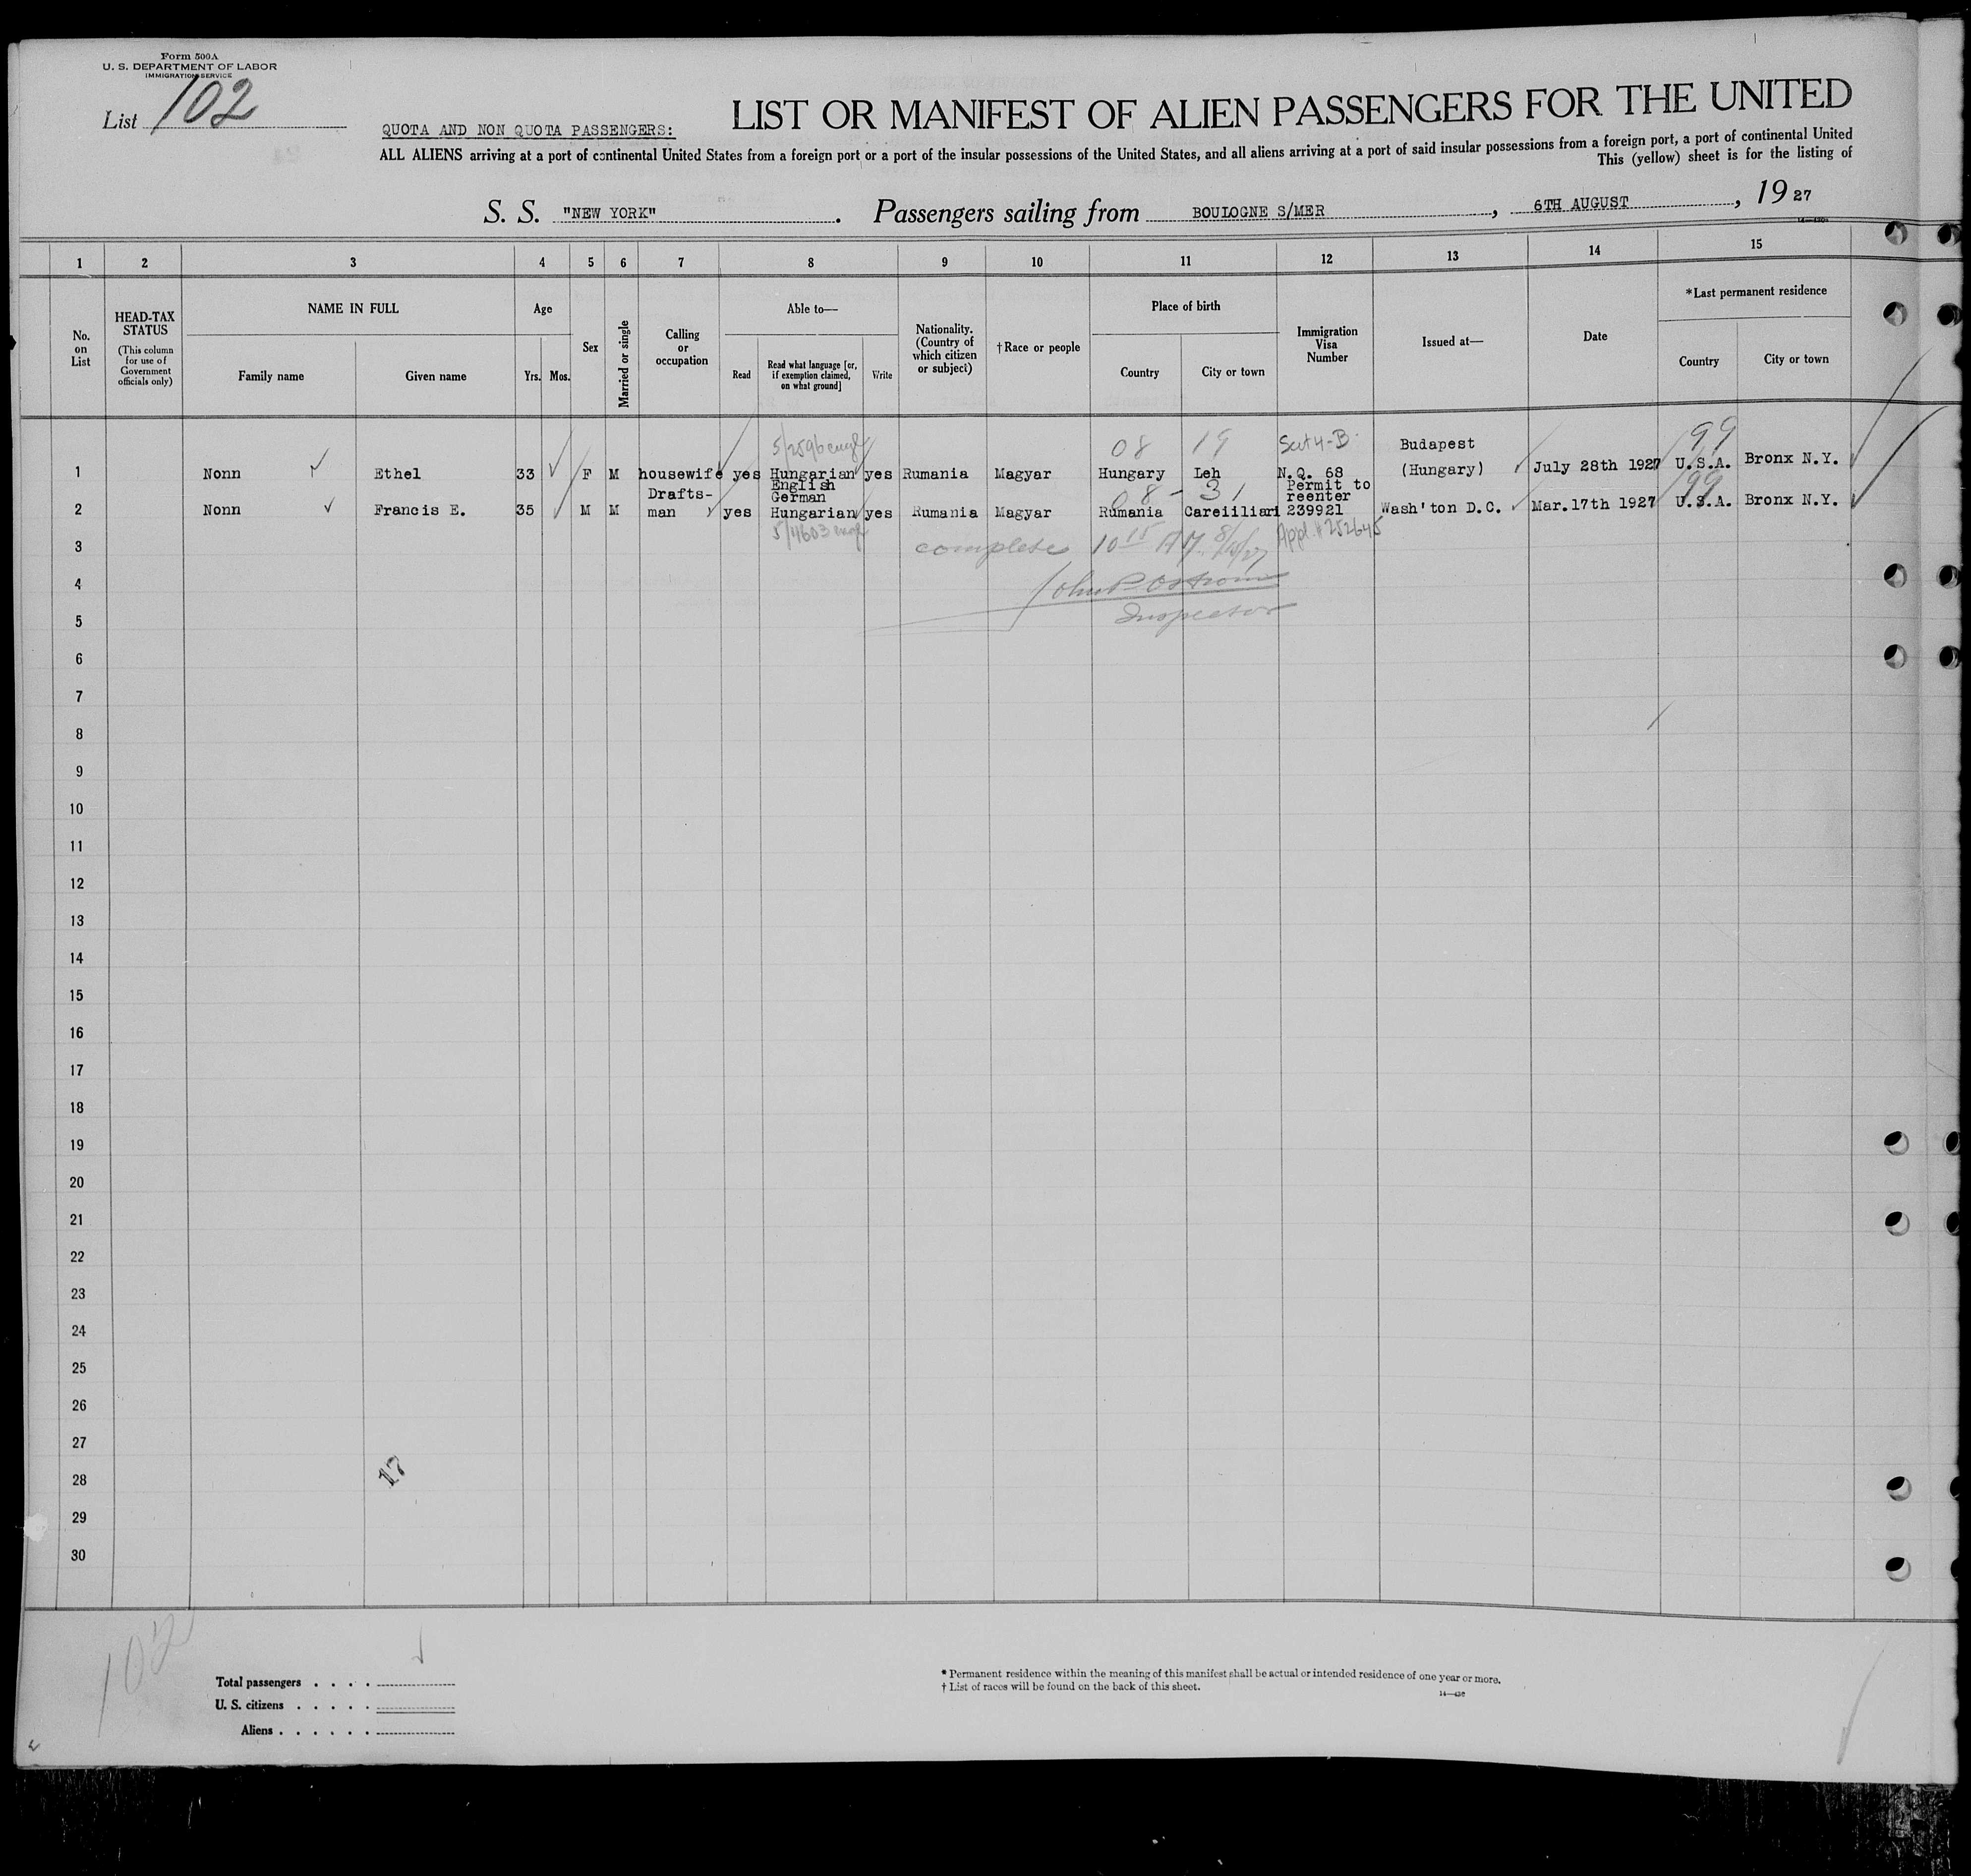 Form 500A
U. S. DEPARTMENT OF LABOR
IMMIGRATION SERVICE
List 102
LIST OR MANIFEST OF ALIEN PASSENGERS FOR THE UNITED
QUOTA AND NON QUOTA PASSENGERS:
ALL ALIENS arriving at a port of continental United States from a foreign port or a port of the insular possessions of the United States, and all aliens arriving at a port of said insular possessions from a foreign port, a port of continental United
This (yellow) sheet is for the listing of
S. S. "NEW YORK" . Passengers sailing from BOULOGNE S/MER , 6TH AUGUST , 19 27
1 2 3 4 5 6 7 8 9 10 11 12 13 14 15
No. on List
HEAD-TAX STATUS
(This column for use of Government officials only)
NAME IN FULL
Family name Given name
Age
Yrs. Mos.
Sex
Married or single
Calling or occupation
Able to—
Read
Read what language [or, if exemption claimed, on what ground]
Write
Nationality. (Country of which citizen or subject)
†Race or people
Place of birth
Country City or town
Immigration Visa Number
Issued at—
Date
*Last permanent residence
Country City or town
08 19 99
1 Nonn Ethel 33 F M housewife yes Hungarian yes Rumania Magyar Hungary Leh N.Q. 68 Budapest (Hungary) July 28th 1927 U.S.A. Bronx N.Y.
08 - 31 99
2 Nonn Francis E. 35 M M Drafts-man yes English German Hungarian yes Rumania Magyar Rumania Careiiliari Permit to reenter 239921 Wash'ton D.C. Mar.17th 1927 U.S.A. Bronx N.Y.
3 complete 10 15 AM 8/15/27 Appl. # 252645
4 John P Ostrom
5 Inspector
6
7
8
9
10
11
12
13
14
15
16
17
18
19
20
21
22
23
24
25
26
27
28 17
29
30
102
Total passengers . . . .
U. S. citizens . . . . .
Aliens . . . . . .
* Permanent residence within the meaning of this manifest shall be actual or intended residence of one year or more.
† List of races will be found on the back of this sheet.